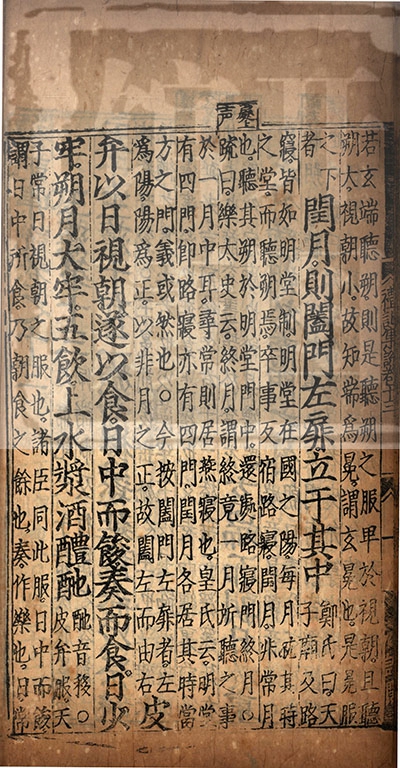 若玄端聽朔則是聽朔之服卑於視朝且聽
朔大視朝小故知端為冕謂玄冕也是冕服
之下者
閏月則闔門左扉立于其中
鄭氏曰天
子廟及路
寢皆如明堂制明堂在國之陽每月就其時
之堂而聽朔焉卒事反宿路寢閏月非常月
也聽其朔於明堂門中還處路寢門終月○
疏曰樂太史云終月謂終竟一月所聽之事
於一月中耳尋常則居燕寢也皇氏云明堂
有四門即路寢亦有四門閏月各居其時當
方之門義或然也○今按闔門左扉者左
為陽陽為正以非月之正故闔左而由右
皮
弁以日視朝遂以食日中而餕奏而食日少
牢朔月大牢五飲上水漿酒醴酏
酏音移○
皮弁服天
子常日視朝之服也諸臣同此服日中而餕
謂日中所食乃朝食之餘也奏作樂也日常